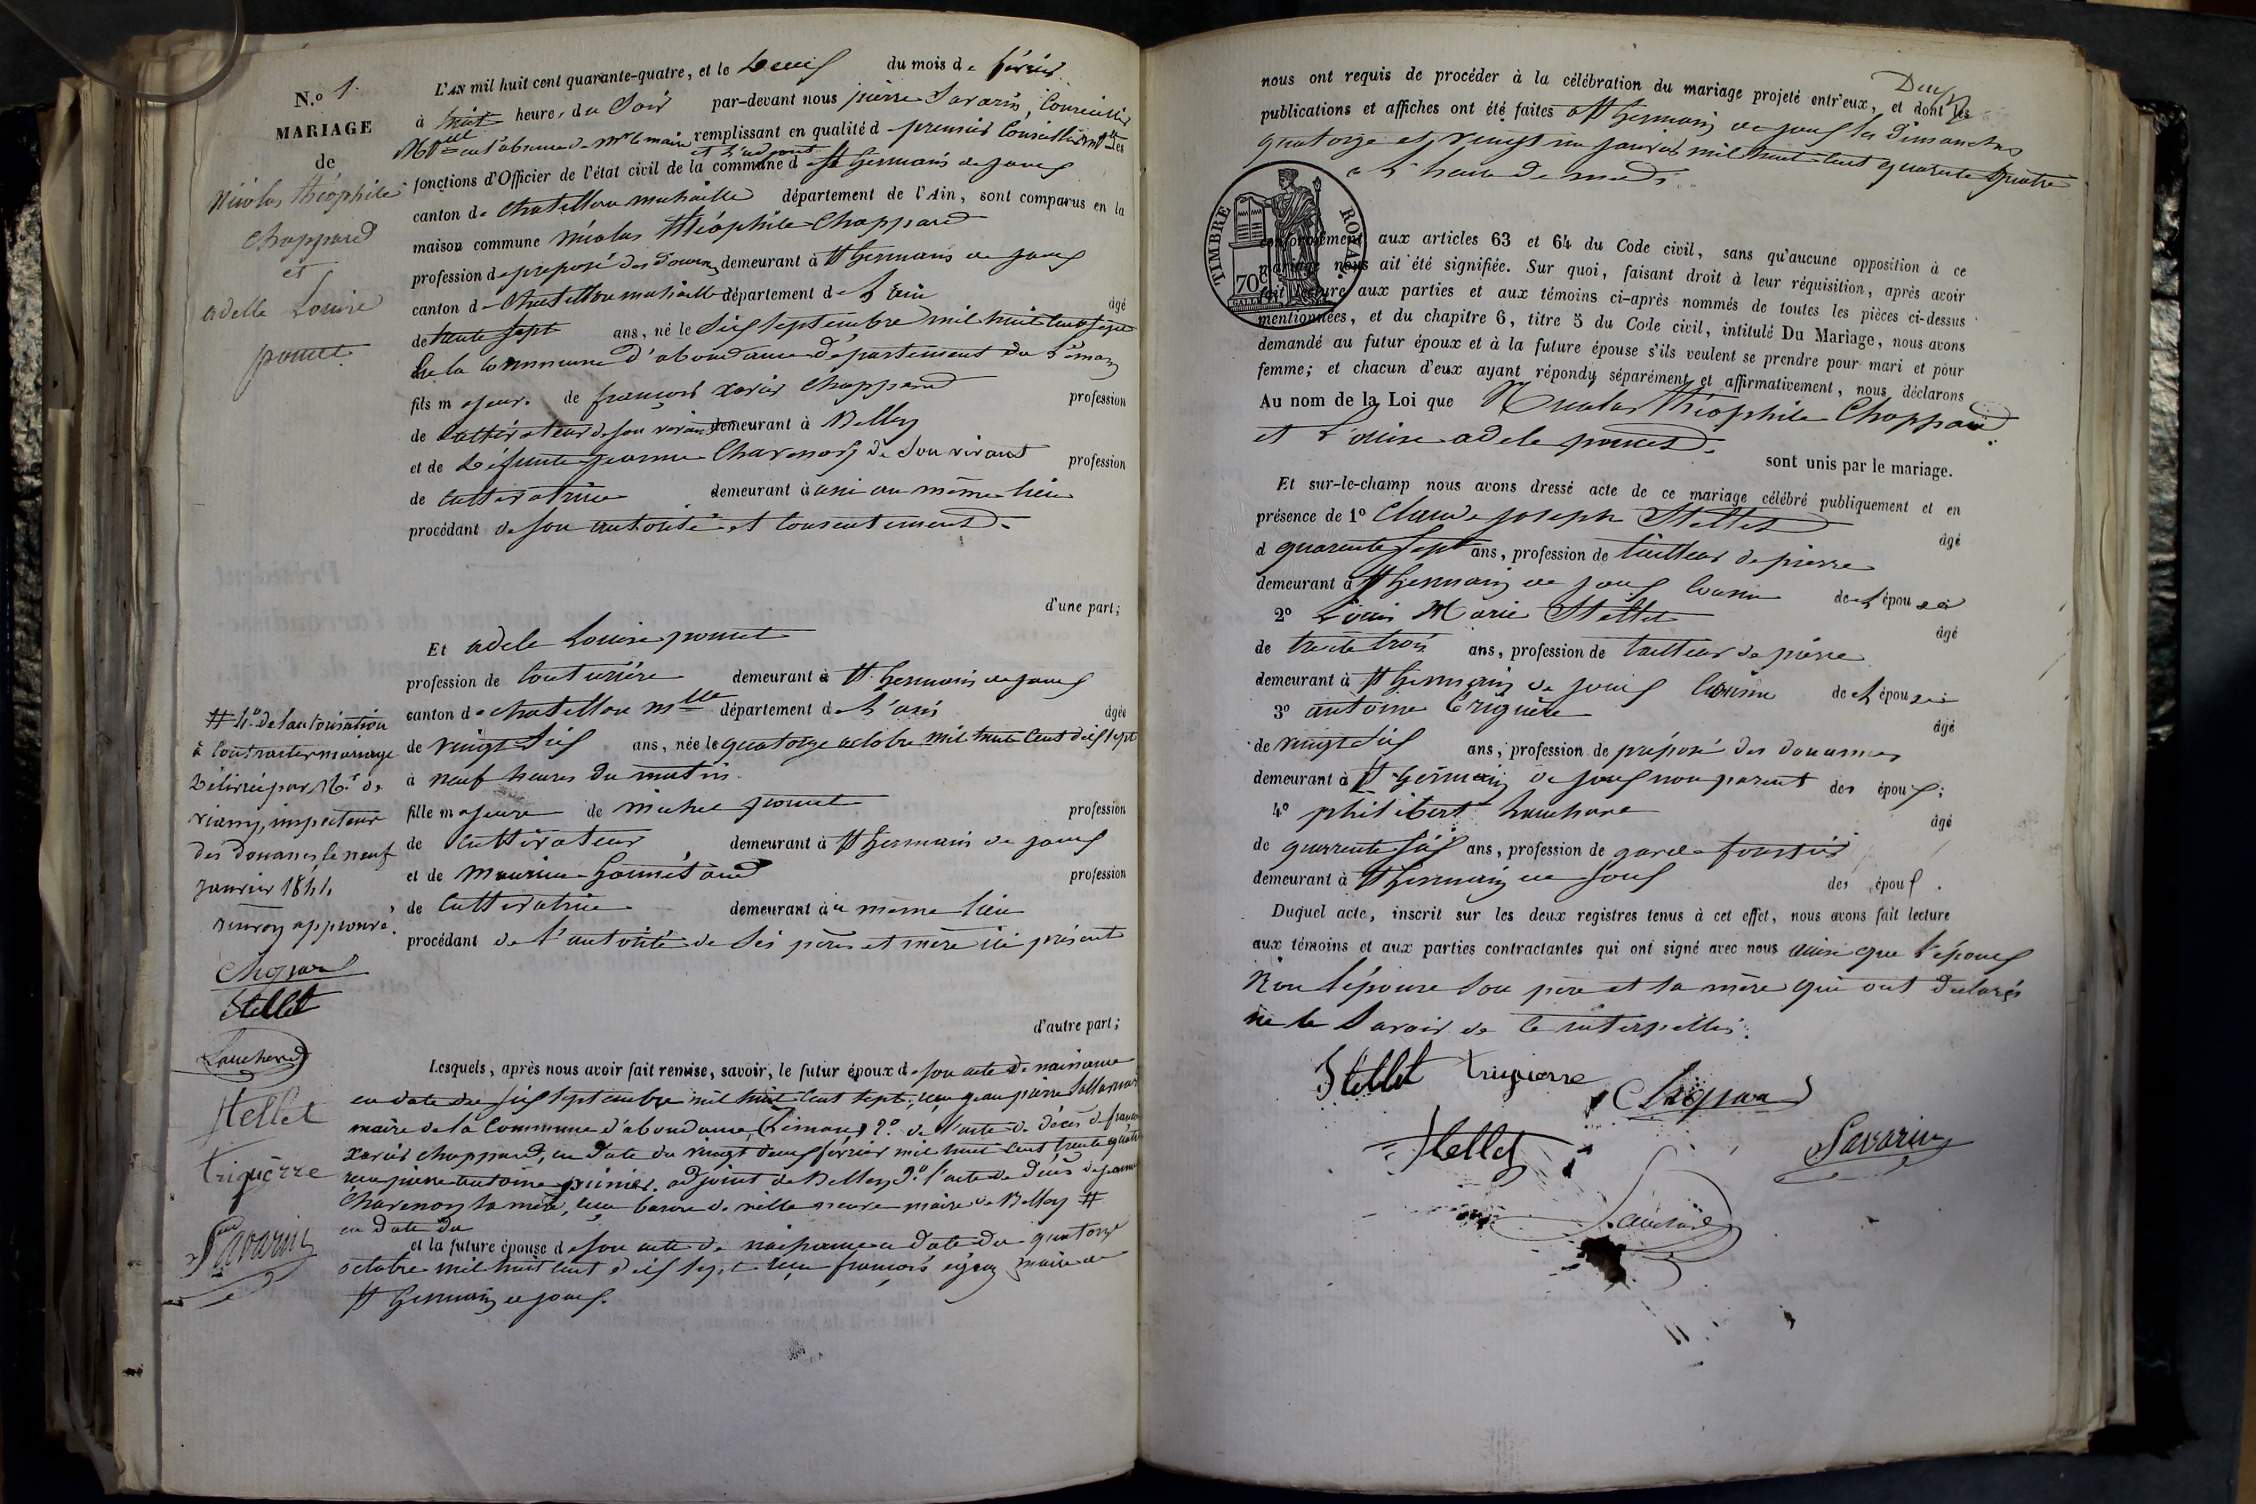 N.o 1.
MARIAGE
de
Nicolas théophile
Chappard
et
adelle Louise
poncet
L'AN mil huit cent quarante-quatre, et le deux du mois de février
à huit heures du Soir par-devant nous pierre Savarin, Conseiller
Mpal en l'absence de Mr le maire et l'adjoint remplissant en qualité de premier Conseiller mpal les
fonctions d'Officier de l'état civil de la commune de St Germain de joux
canton de Chatillon michaille département de l'Ain, sont comparus en la
maison commune Nicolas théophile Chappard
profession de préposé des douanes demeurant à St Germain de joux
canton de Chatillon michaille département de L'ain
âgé
de trente sept ans, né le Six septembre mil huit cent sept
de la Commune d'abondance département du Léman
fils majeur de françois xavier Chappard
profession
de Cultivateur de son vivant demeurant à Belley
et de défunte jeanne Chavenoy de Son vivant profession
de Cultivatrice demeurant à au même lieu
procédant de son autorité et Consentement
d'une part;
Et adele Louise poncet
profession de Couturière demeurant à St Germain de joux
canton de chatillon mlle département de L'ain
âgée
de vingt Six ans, née le quatorze octobre mil huit Cent dix sept
à neuf heures du matin
fille majeure de michel poncet
profession
de Cultivateur demeurant à St Germain de joux
et de
profession
de Cultivatrice demeurant à u même lieu
procédant de l'autorité de Ses père et mère ici présents
d'autre part;
# 4.o de l'autorisation
à Contracter mariage
Délivré par Mr. de
inspecteur
des douanes, le neuf
janvier 1844
renvoy approuvé
Chappard
Stellet
Lauchard
Stellet
Triguerre
Savarin
Lesquels, après nous avoir fait remise, savoir, le futur époux de son acte de naissance
en date du Six septembre mil huit Cent sept, reçu jean pierre
maire de la Commune d'abondance, (Léman) 2.o de l'acte de décès de françois
xavier Chappard, en date du vingt deux février mil huit Cent trente quatre
reçu pierre antoine adjoint de Belley 3.o l'acte de décès de jeanne
Chavenoy Sa mère, reçu maire de Belley #
en date du
et la future épouse de Son acte de naissance en date du quatorze
octobre mil huit cent dix sept reçu françois maire de
St Germain de joux.
nous ont requis de procéder à la célébration du mariage projeté entr'eux, et dont les Deux
publications et affiches ont été faites à St Germain de joux les dimanches
quatorze et vingt un janvier mil huit cent quarante quatre
à L'heure de midi
TIMBRE ROYAL
70c
conformément aux articles 63 et 64 du Code civil, sans qu'aucune opposition à ce
mariage nous ait été signifiée. Sur quoi, faisant droit à leur réquisition, après avoir
fait lecture aux parties et aux témoins ci-après nommés de toutes les pièces ci-dessus
mentionnées, et du chapitre 6, titre 5 du Code civil, intitulé Du Mariage, nous avons
demandé au futur époux et à la future épouse s'ils veulent se prendre pour mari et pour
femme; et chacun d'eux ayant répondu séparément et affirmativement, nous déclarons
Au nom de la Loi que Nicolas théophile Chappard
et Louise adele poncet
sont unis par le mariage.
Et sur-le-champ nous avons dressé acte de ce mariage célébré publiquement et en
présence de 1o Claude joseph Stellet
âgé
d quarente sept ans, profession de tailleur de pierre
demeurant à St Germain de joux Cousin de L'épouse
2o Louis Marie Stellet
âgé
de trente trois ans, profession de tailleur de pierre
demeurant à St Germain de joux Cousin de L'épouse
3o antoine Triguère
âgé
de vingt Six ans, profession de préposé des douannes
demeurant à St Germain de joux non parent des époux;
4o philibert Lauchard
âgé
de quarrente six ans, profession de garde forestier
demeurant à St Germain de joux des époux.
Duquel acte, inscrit sur les deux registres tenus à cet effet, nous avons fait lecture
aux témoins et aux parties contractantes qui ont signé avec nous ainsi que l'époux
Non l'épouse Son père et Sa mère qui ont déclarés
ne le Savoir de Ce interpellés.
Stellet Triguerre Chappard
Stellet
Savarin
Lauchard